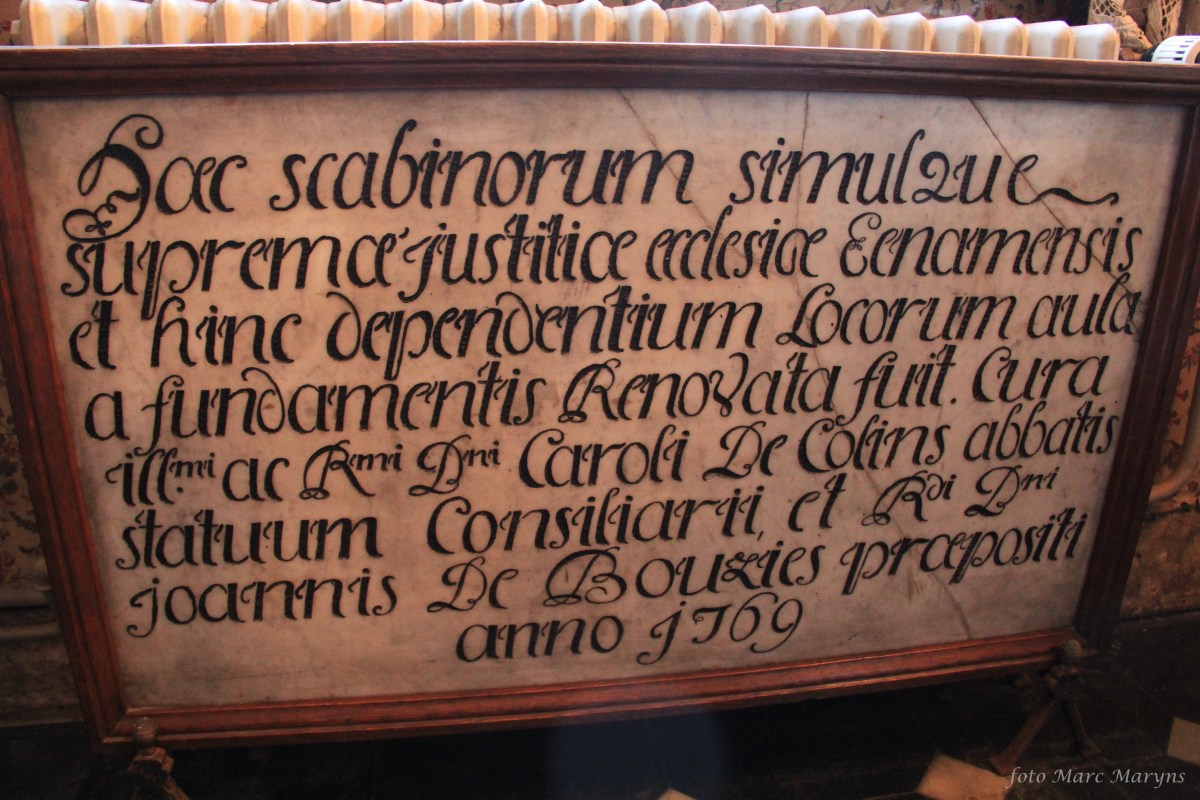 Hæc scabinorum simulque
supremæ justitiæ ecclesiæ Eenamensis
et hinc dependentium Locorum aula
a fundamentis Renovata fuit. Cura
ill.mi ac Rmi Dni Caroli De Colins abbatis
statuum Consiliarii, et Rdi Dni
joannis De Bouzies præpositi
anno j769
foto Marc Maryns